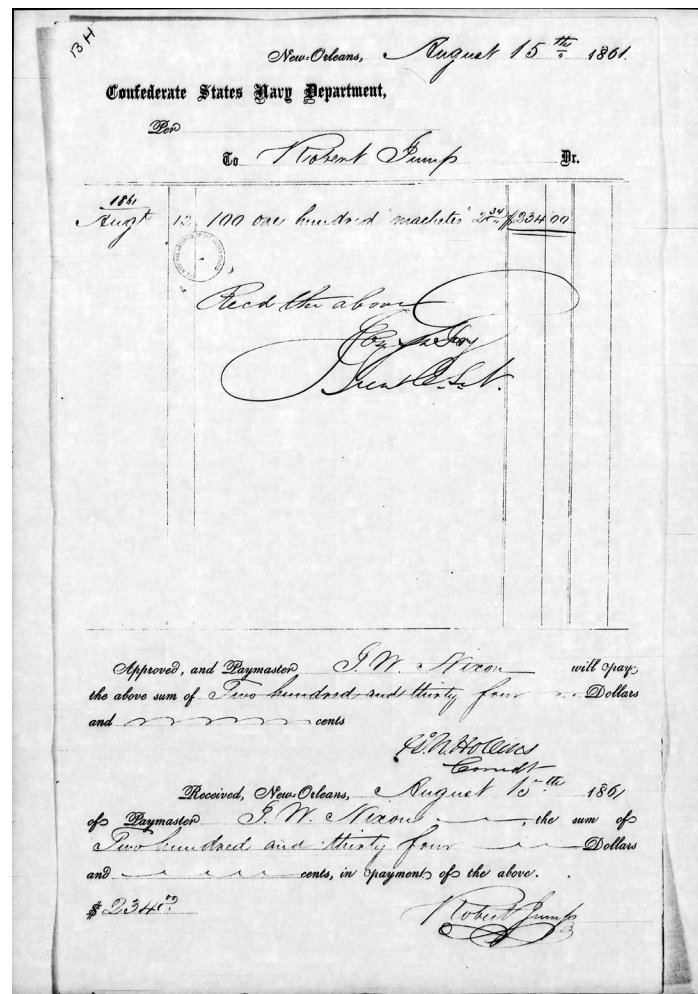 13 H
New-Orleans, August 15th 1861.
Confederate States Navy Department,
Per
To Robert Jump Dr.
1861
Augt 12 100 one hundred machetes 2 34 $234 00
Recd the above
Lieut C.S.N.
Approved, and Paymaster J. W. Nixon will pay
the above sum of Two hundred and thirty four Dollars
and cents
G. N. Hollins
Comdt
Received, New-Orleans, August 15th 1861
of Paymaster J. W. Nixon, the sum of
Two hundred and thirty four Dollars
and cents, in payment of the above.
$ 234 00
Robert Jump